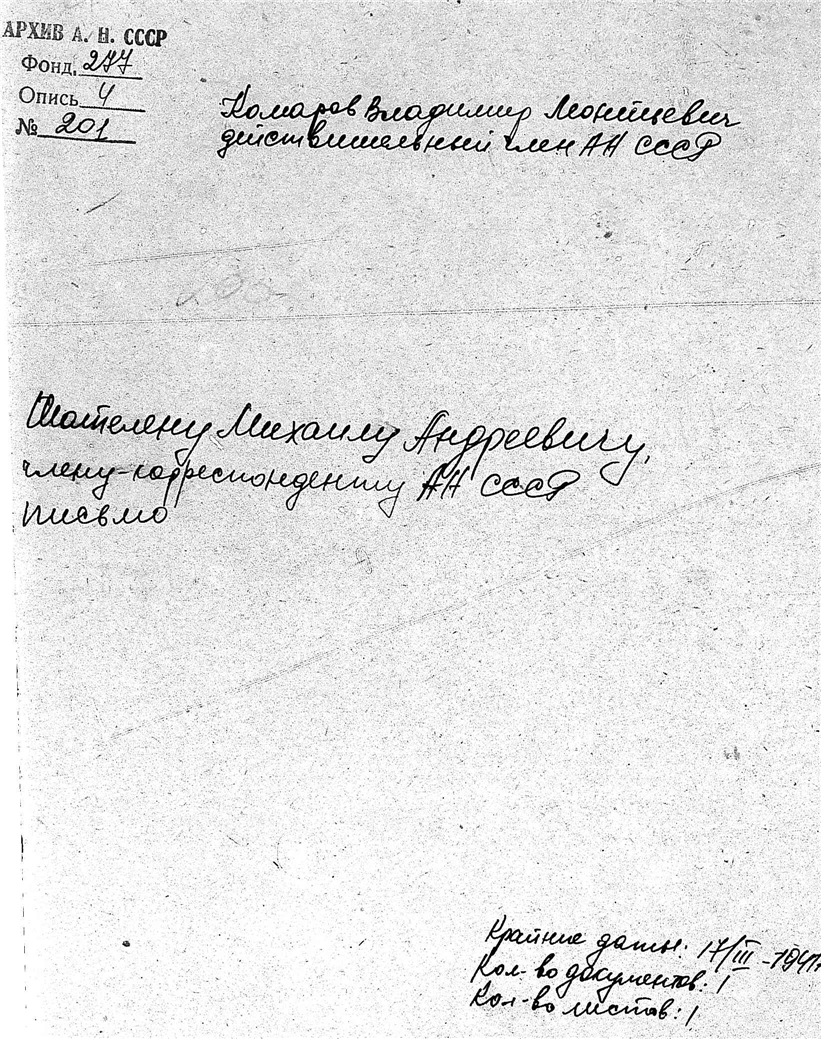 АРХИВ А. Н. СССР
Фонд. 277
Опись 4
№ 201
Комаров Владимир Леонтьевич
действительный член АН СССР
Шателену Михаилу Андреевичу,
члену-корреспонденту АН СССР
письмо
Крайние даты: 17/III - 1941г
Кол-во документов: 1
Кол-во листов: 1